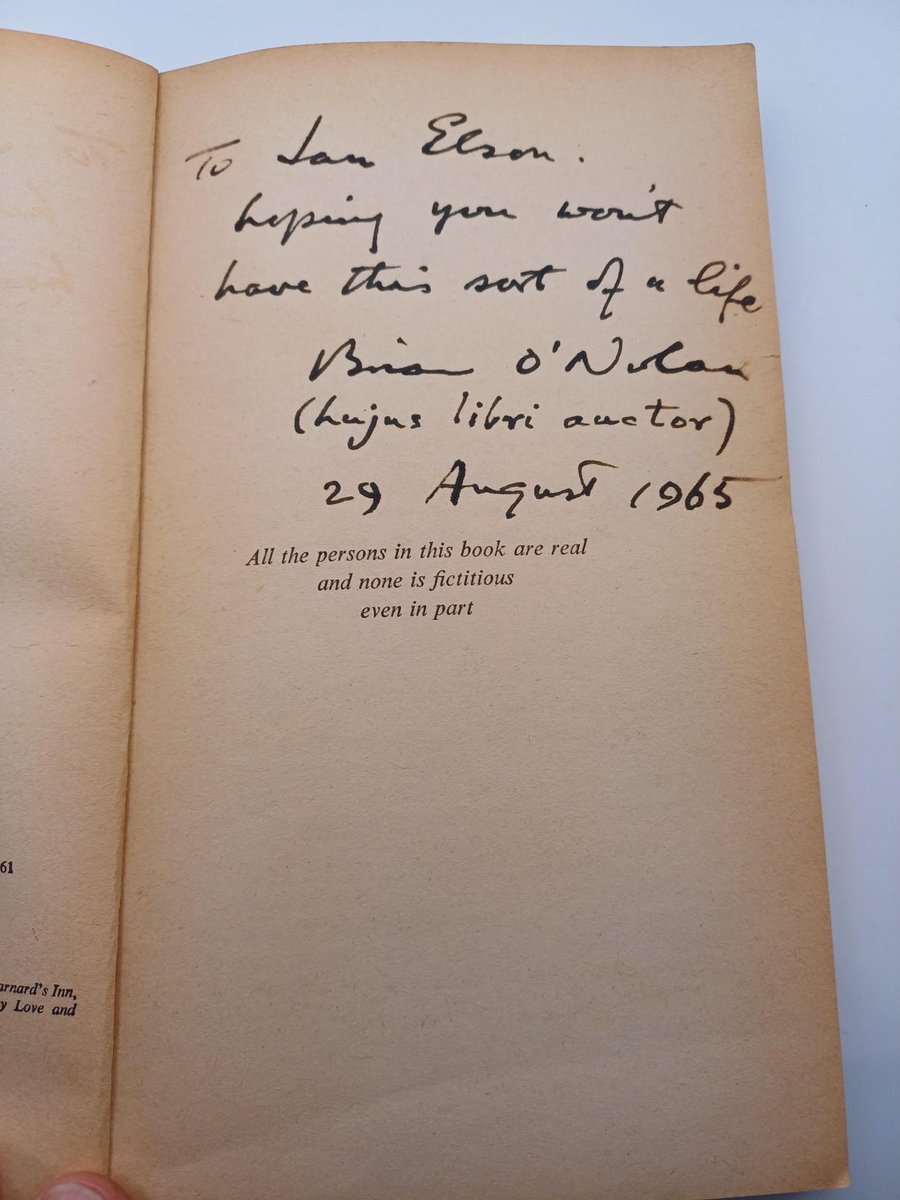 To Ian Elson.
hoping you won't
have this sort of a life
Brian O'Nolan
(hujus libri auctor)
29 August 1965
All the persons in this book are real
and none is fictitious
even in part
61
arnard's Inn,
y Love and